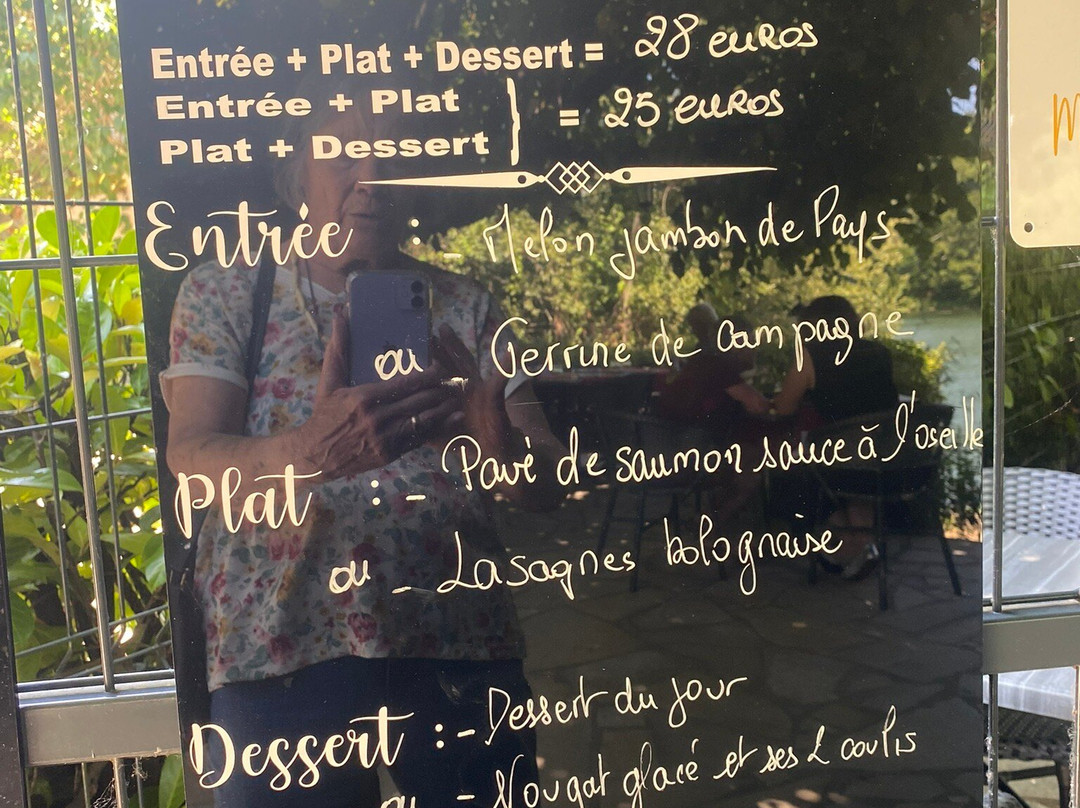 Entrée + Plat + Dessert = 28 euros
Entrée + Plat
Plat + Dessert } = 25 euros
Entrée : - Melon jambon de Pays
ou - Terrine de campagne
Plat : - Pavé de saumon sauce à l'oseille
ou - Lasagnes bolognaise
Dessert : - Dessert du jour
ou - Nougat glacé et ses 2 coulis
M